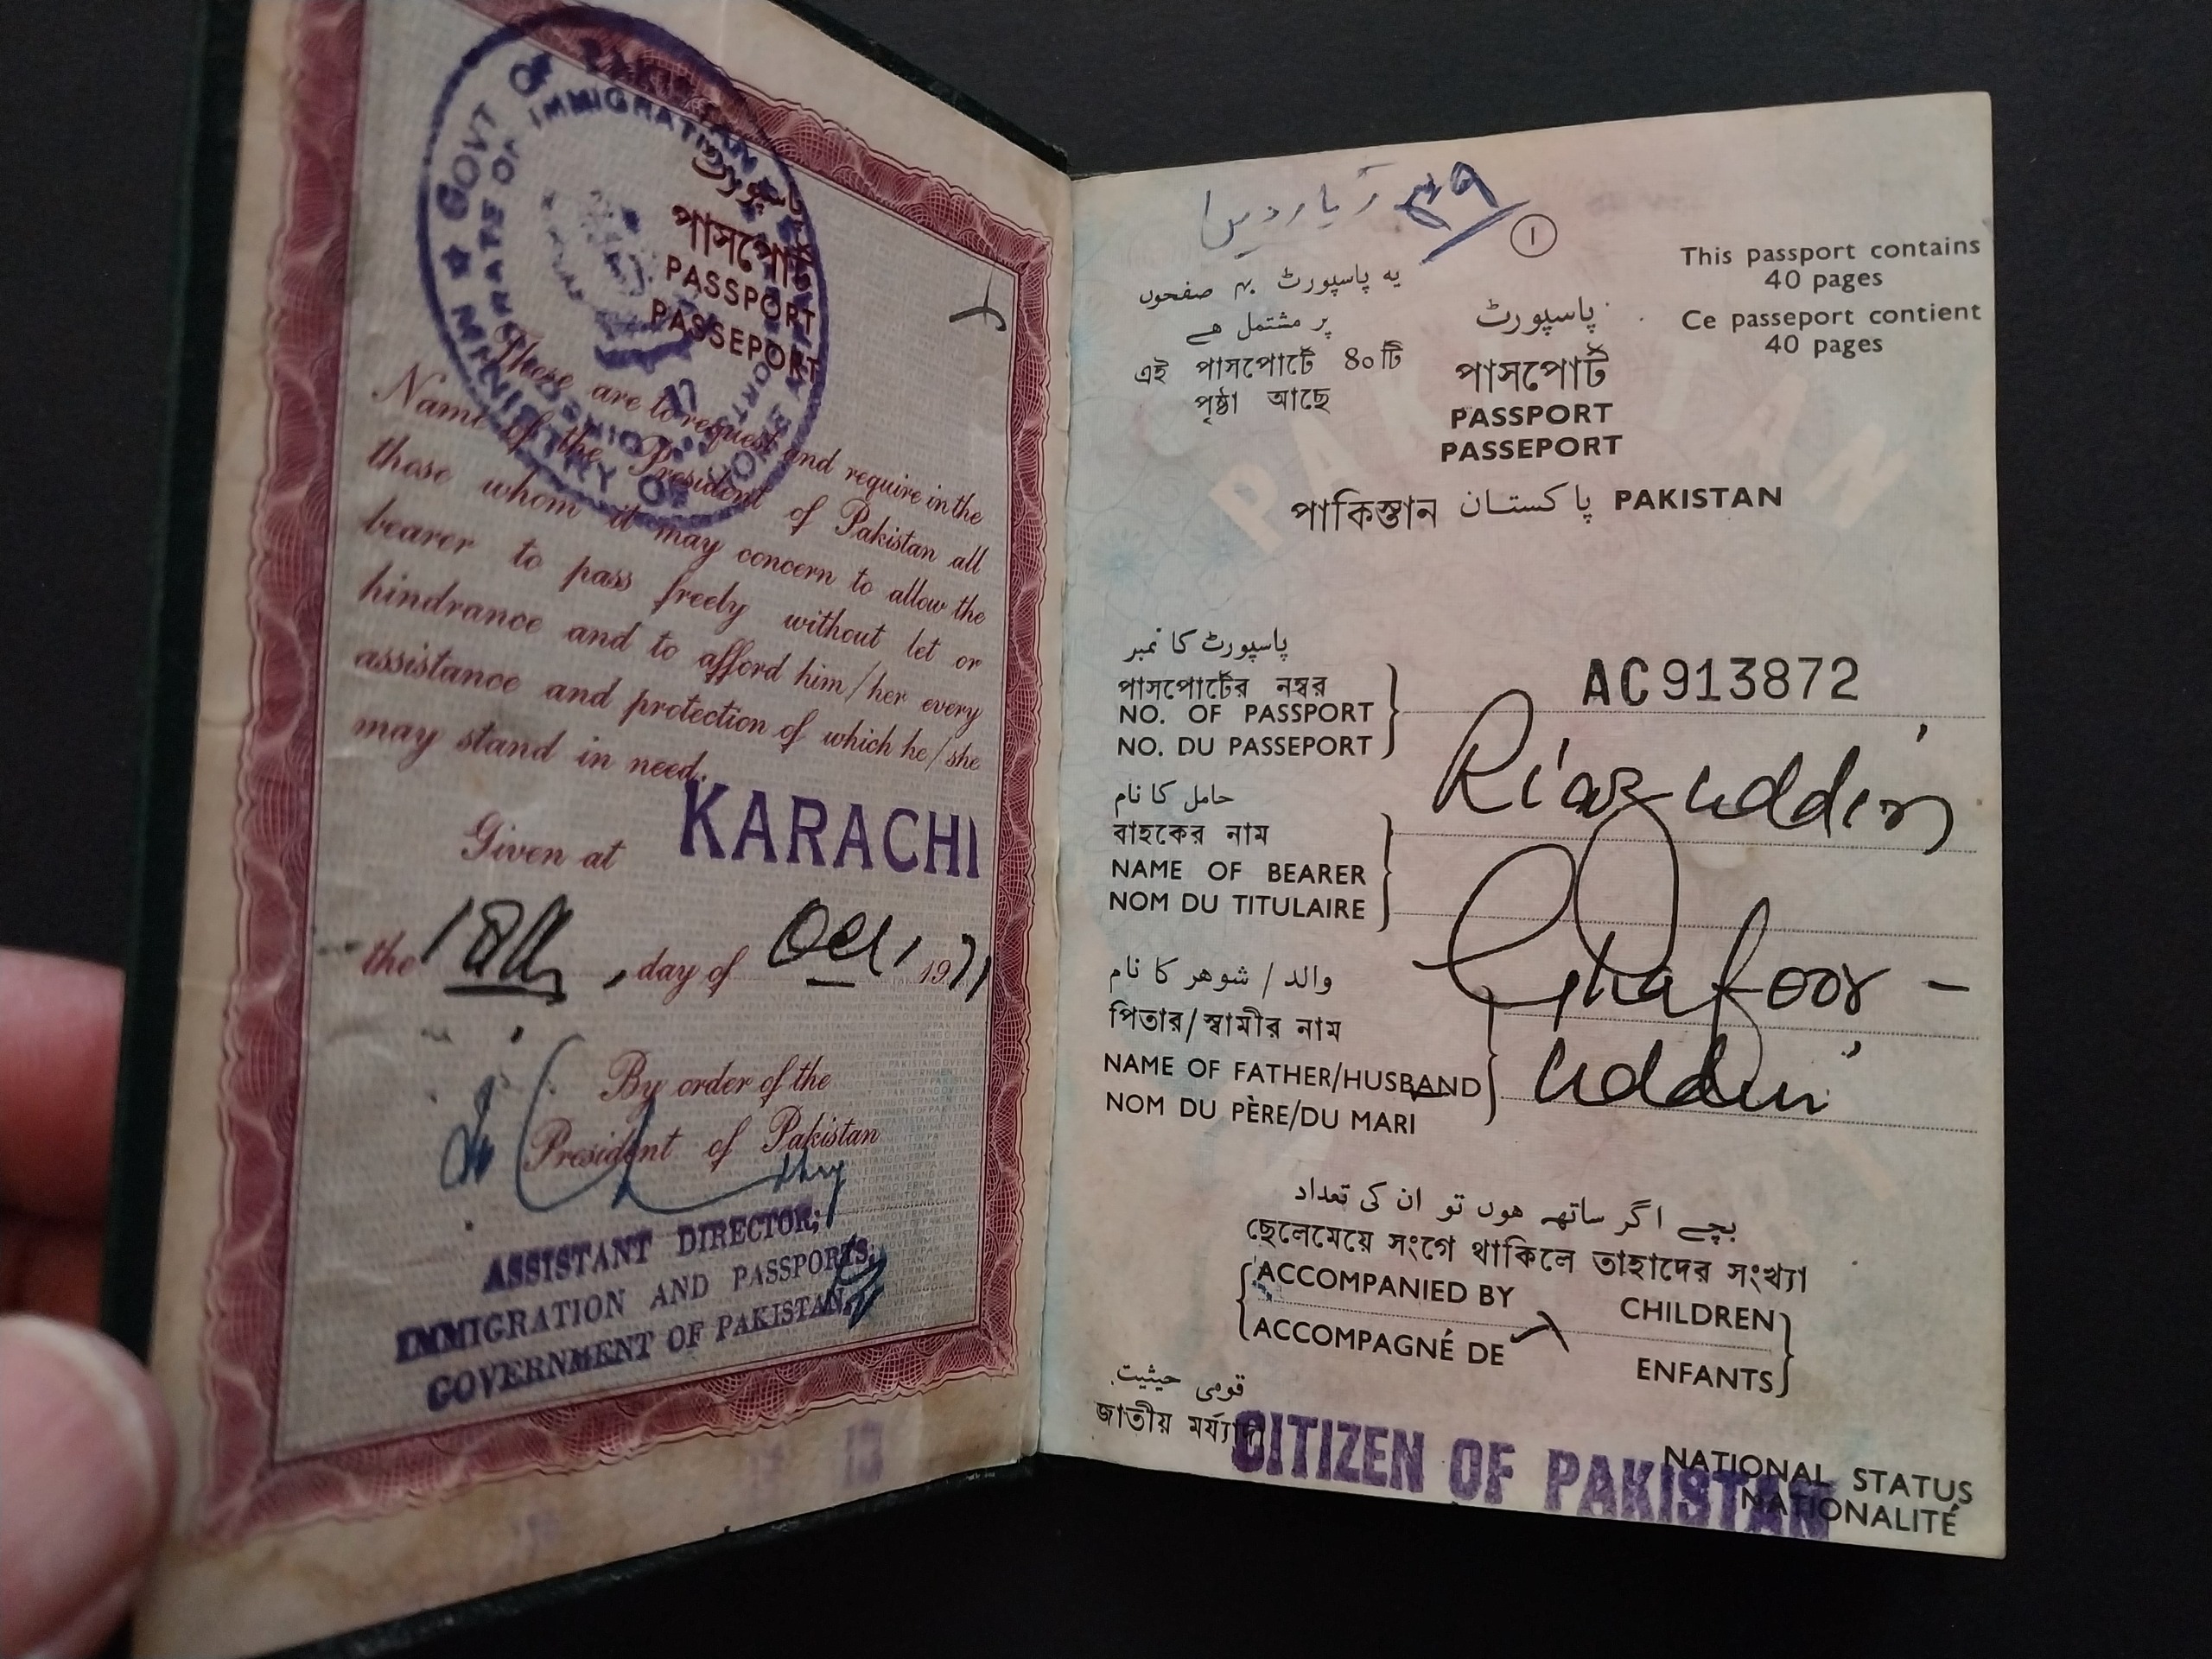 GOVT OF PAKISTAN
IMMIGRATION
MINISTRY OF
পাসপোর্ট
PASSPORT
PASSEPORT
These are to request and require in the
Name of the President of Pakistan all
those whom it may concern to allow the
bearer to pass freely without let or
hindrance and to afford him/her every
assistance and protection of which he/she
may stand in need.
Given at KARACHI
the 18th, day of Oct, 1971
By order of the
President of Pakistan
ASSISTANT DIRECTOR,
IMMIGRATION AND PASSPORTS,
GOVERNMENT OF PAKISTAN,
1
یہ پاسپورٹ ۴۰ صفحوں
پر مشتمل ہے
এই পাসপোর্টে ৪০টি
পৃষ্ঠা আছে
پاسپورٹ
পাসপোর্ট
PASSPORT
PASSEPORT
This passport contains
40 pages
Ce passeport contient
40 pages
পাকিস্তান پاکستان PAKISTAN
پاسپورٹ کا نمبر
পাসপোর্টের নম্বর
NO. OF PASSPORT
NO. DU PASSEPORT
AC913872
حامل کا نام
বাহকের নাম
NAME OF BEARER
NOM DU TITULAIRE
Riaz uddin
والد / شوہر کا نام
পিতার/স্বামীর নাম
NAME OF FATHER/HUSBAND
NOM DU PÈRE/DU MARI
Ghafoor -
uddin
بچے اگر ساتھ ہوں تو ان کی تعداد
ছেলেমেয়ে সংগে থাকিলে তাহাদের সংখ্যা
ACCOMPANIED BY CHILDREN
ACCOMPAGNÉ DE ENFANTS
قومی حیثیت
জাতীয় মর্য্যাদা
CITIZEN OF PAKISTAN
NATIONAL STATUS
NATIONALITÉ